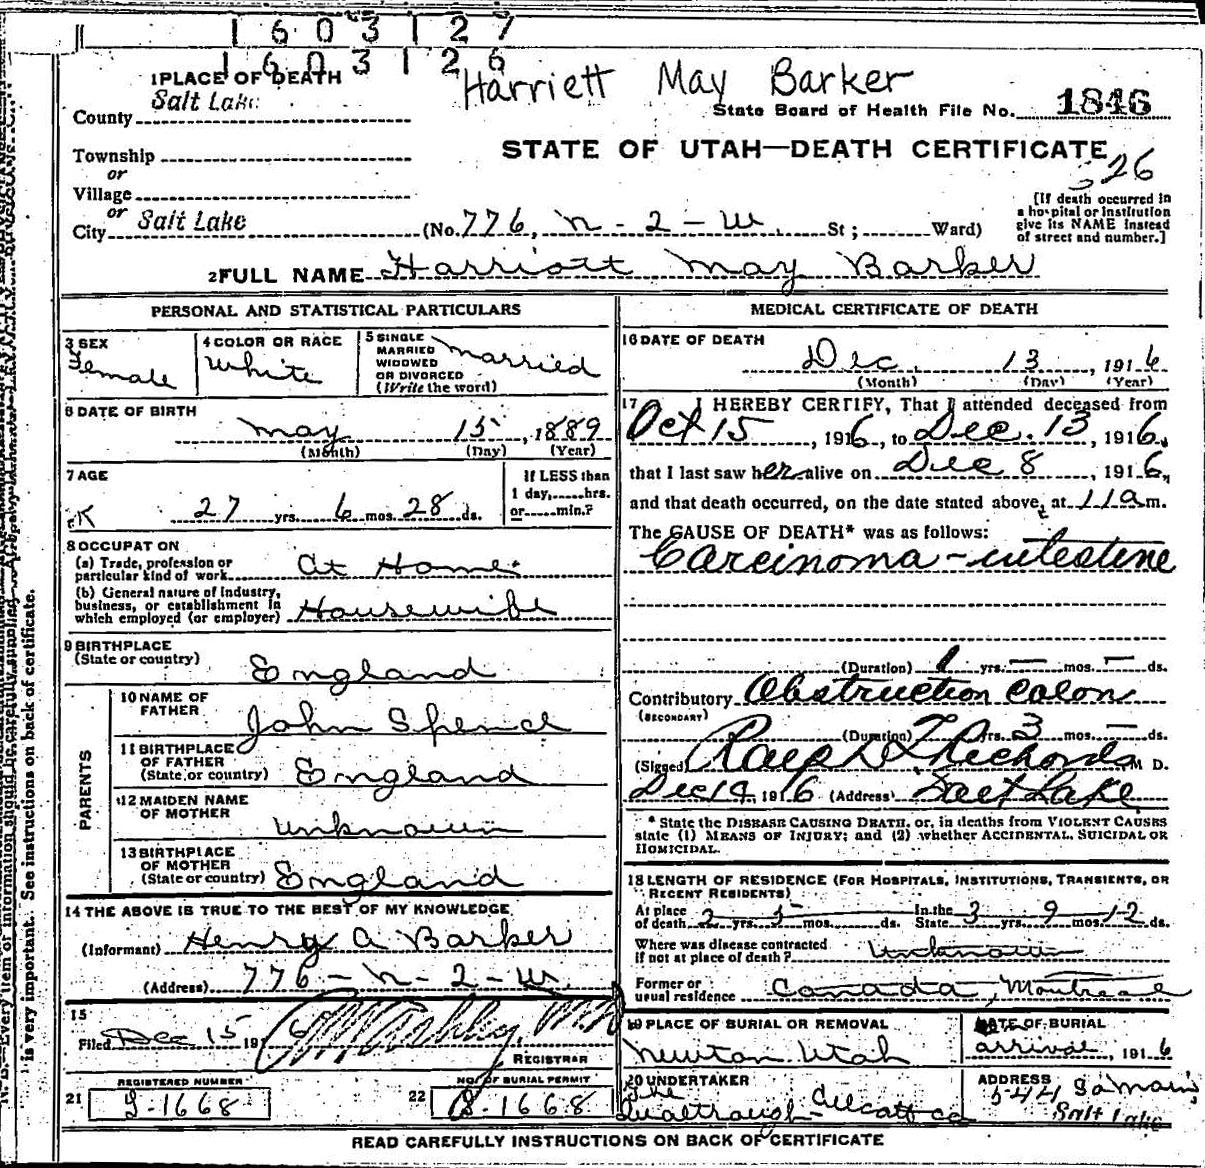 1603127
1603126
Harriett May Barker
1 PLACE OF DEATH
County Salt Lake
State Board of Health File No. 1846
Township
or
Village
or
City Salt Lake
STATE OF UTAH—DEATH CERTIFICATE
526
(No. 776, N - 2 - W. St; Ward)
[If death occurred in
a hospital or institution
give its NAME instead
of street and number.]
2 FULL NAME Harriott May Barker
PERSONAL AND STATISTICAL PARTICULARS
3 SEX
Female
4 COLOR OR RACE
White
5 SINGLE
MARRIED
WIDOWED
OR DIVORCED
(Write the word)
Married
6 DATE OF BIRTH
May 15, 1889
(Month) (Day) (Year)
7 AGE
27 yrs. 6 mos. 28 ds.
If LESS than
1 day, hrs.
or min.?
8 OCCUPATION
(a) Trade, profession or
particular kind of work At Home
(b) General nature of Industry,
business, or establishment in
which employed (or employer) Housewife
9 BIRTHPLACE
(State or country) England
PARENTS
10 NAME OF
FATHER John Spence
11 BIRTHPLACE
OF FATHER
(State or country) England
12 MAIDEN NAME
OF MOTHER Unknown
13 BIRTHPLACE
OF MOTHER
(State or country) England
14 THE ABOVE IS TRUE TO THE BEST OF MY KNOWLEDGE
(Informant) Henry A Barker
(Address) 776 - N - 2 - W.
15
Filed Dec 15 1916
REGISTRAR
REGISTERED NUMBER
21 I-1668
NO. OF BURIAL PERMIT
22 A-1668
MEDICAL CERTIFICATE OF DEATH
16 DATE OF DEATH
Dec. 13, 1916
(Month) (Day) (Year)
17 I HEREBY CERTIFY, That I attended deceased from
Oct 15, 1916, to Dec. 13, 1916,
that I last saw her alive on Dec 8, 1916,
and that death occurred, on the date stated above, at 11 a m.
The CAUSE OF DEATH* was as follows:
Carcinoma - intestine
(Duration) 1 yrs. — mos. — ds.
Contributory Obstruction Colon
(SECONDARY)
(Duration) yrs. 3 mos. — ds.
(Signed) Ralph T Richards M D.
Dec 14, 1916 (Address) Salt Lake
* State the DISEASE CAUSING DEATH, or, in deaths from VIOLENT CAUSES
state (1) MEANS OF INJURY; and (2) whether ACCIDENTAL, SUICIDAL OR
HOMICIDAL.
18 LENGTH OF RESIDENCE (FOR HOSPITALS, INSTITUTIONS, TRANSIENTS, OR
RECENT RESIDENTS)
At place
of death 2 yrs. 5 mos. ds. In the
State 3 yrs. 9 mos. 12 ds.
Where was disease contracted
if not at place of death? Unknown
Former or
usual residence Canada, Montreal
19 PLACE OF BURIAL OR REMOVAL
Newton Utah
DATE OF BURIAL
arrival, 1916
20 UNDERTAKER
The
Qualtrough-Alcott Co
ADDRESS
544 So Main,
Salt Lake
READ CAREFULLY INSTRUCTIONS ON BACK OF CERTIFICATE
is very important. See instructions on back of certificate.
N. B.—Every item of information should be carefully supplied.